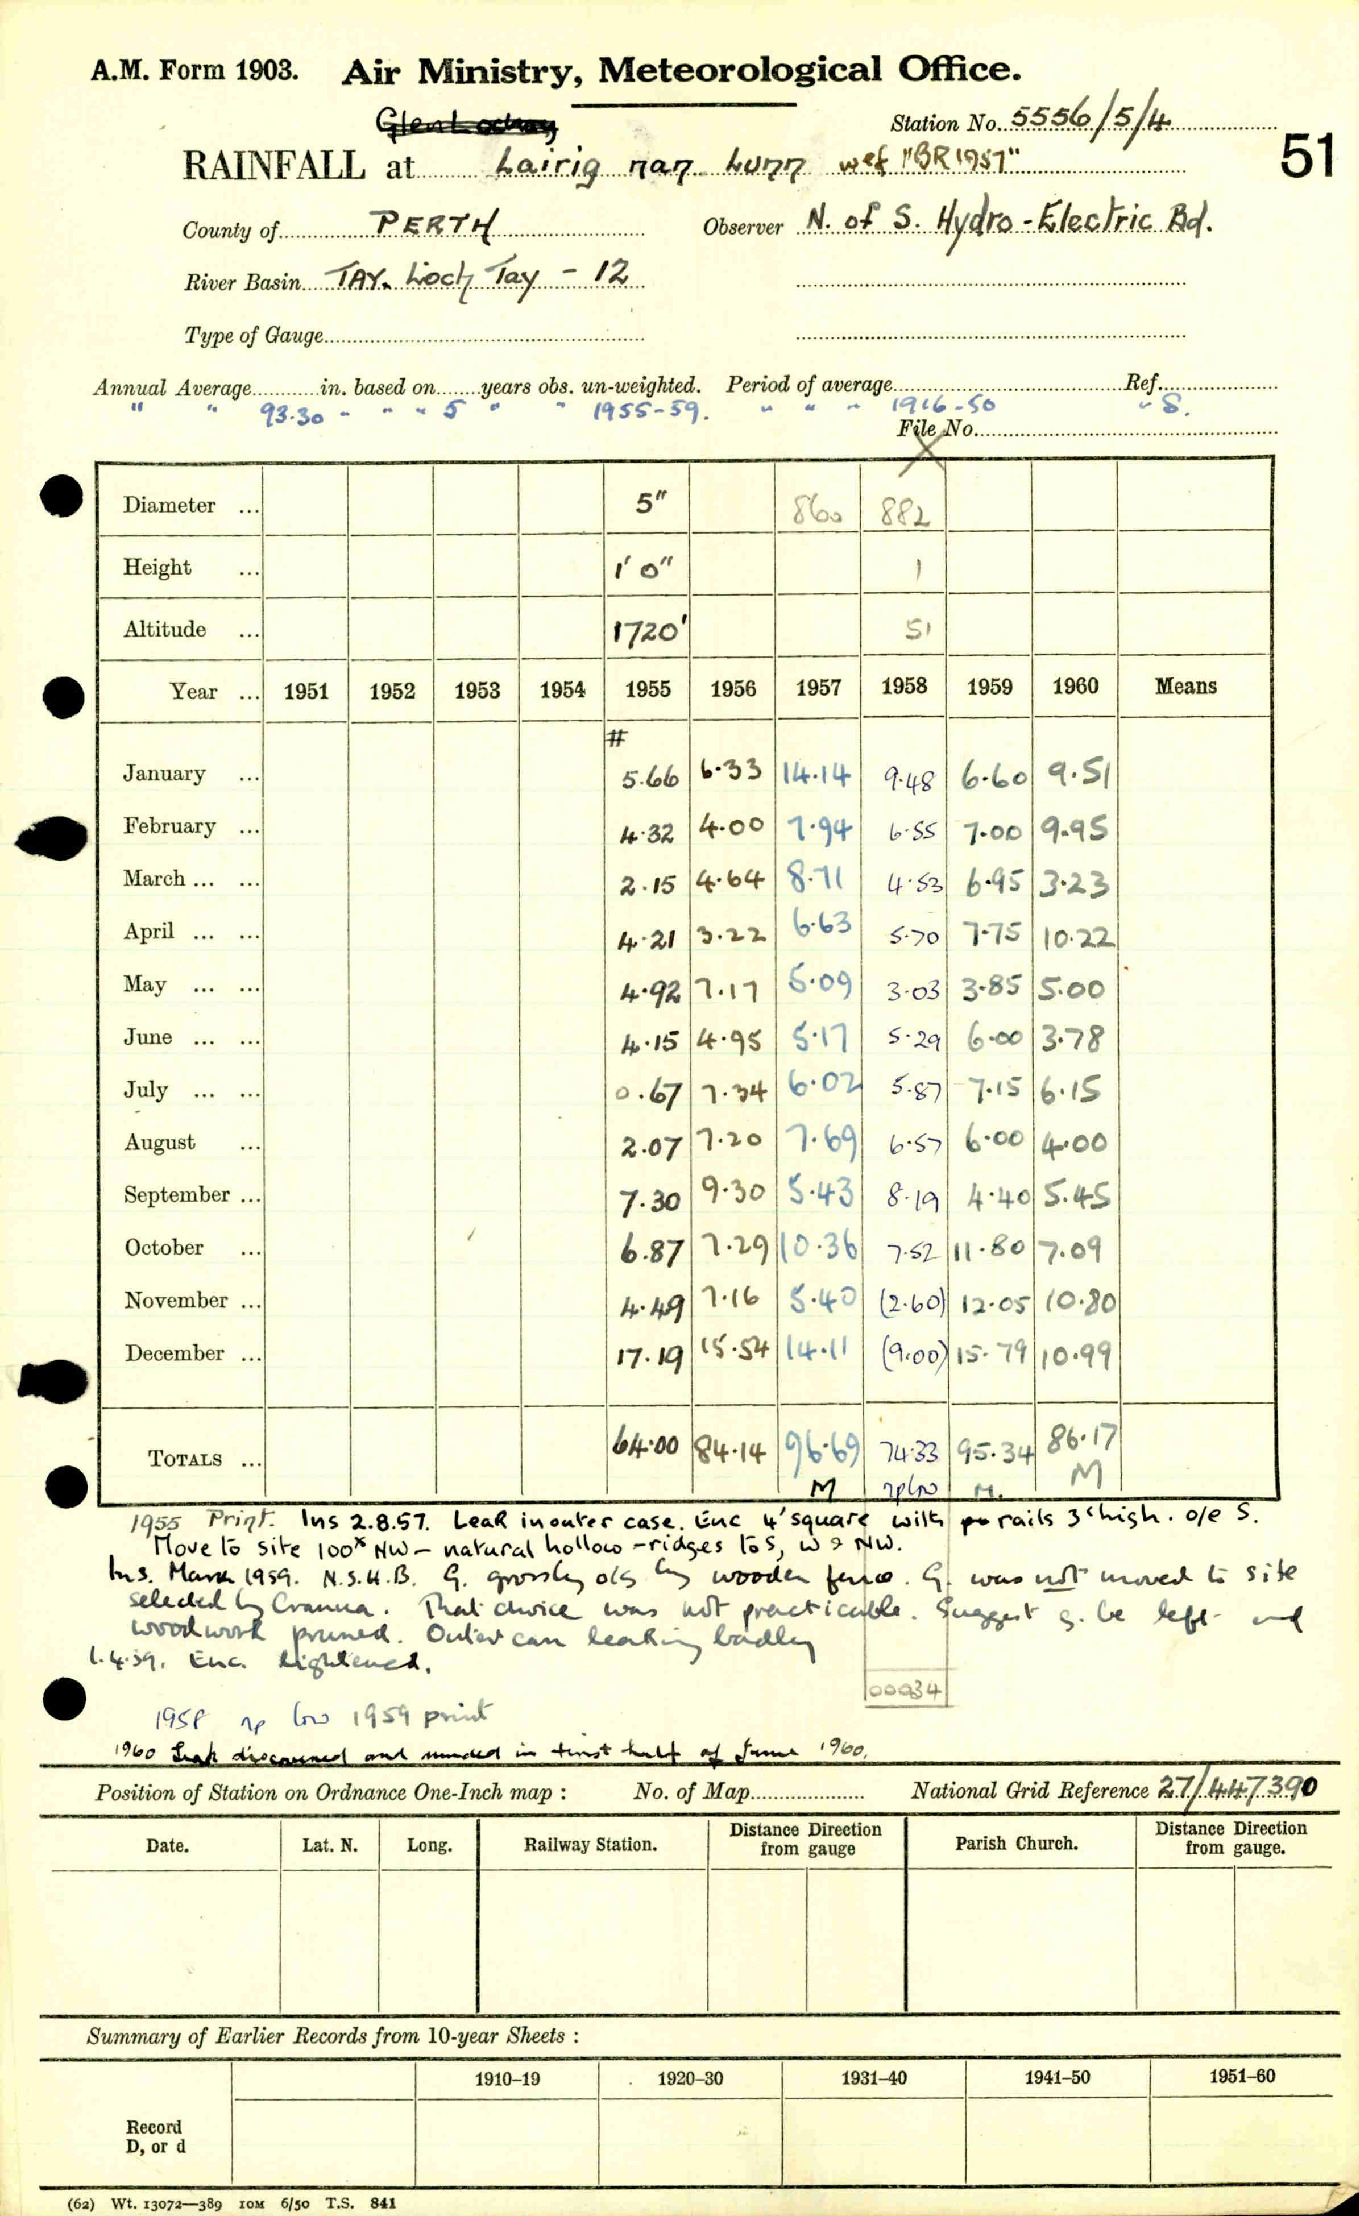 A.M. Form 1903. Air Ministry, Meteorological Office.
Glen Lochay Station No. 5556/5/4
RAINFALL at Lairig nan Lunn wef "BR 1957" 51
County of PERTH Observer N. of S. Hydro-Electric Bd.
River Basin TAY. Loch Tay - 12
Type of Gauge
Annual Average in. based on years obs. un-weighted. Period of average Ref.
" " 93.30 " " " 5 " " 1955-59. " " " 1916-50 " S.
File No.
Diameter ... 5" 860 882
Height ... 1' 0" 1
Altitude ... 1720' 51
Year ... 1951 1952 1953 1954 1955 1956 1957 1958 1959 1960 Means
#
January ... 5.66 6.33 14.14 9.48 6.60 9.51
February ... 4.32 4.00 7.94 6.55 7.00 9.95
March ... ... 2.15 4.64 8.71 4.53 6.95 3.23
April ... ... 4.21 3.22 6.63 5.70 7.75 10.22
May ... ... 4.92 7.17 5.09 3.03 3.85 5.00
June ... ... 4.15 4.95 5.17 5.29 6.00 3.78
July ... ... 0.67 7.34 6.02 5.87 7.15 6.15
August ... 2.07 7.20 7.69 6.57 6.00 4.00
September ... 7.30 9.30 5.43 8.19 4.40 5.45
October ... 6.87 7.29 10.36 7.52 11.80 7.09
November ... 4.49 7.16 5.40 (2.60) 12.05 10.80
December ... 17.19 15.54 14.11 (9.00) 15.79 10.99
TOTALS ... 64.00 84.14 96.69 74.33 95.34 86.17
M rp low M. M
1955 Print. Ins 2.8.57. Leak in outer case. Enc 4' square with rails 3' high. o/e S.
Move to site 100x NW - natural hollow - ridges to S, W & NW.
Ins. March 1959. N.S.H.B. G. grossly o/s by wooden fence. G. was not moved to site
selected by Cranna. That choice was not practicable. Suggest g. be left and
woodwork pruned. Outer can leaking badly
1.4.59. Enc. lightened.
00034
1958 rp low 1959 print
1960 Leak discovered and mended in first half of June 1960.
Position of Station on Ordnance One-Inch map : No. of Map National Grid Reference 27/447390
Date. Lat. N. Long. Railway Station. Distance Direction from gauge Parish Church. Distance Direction from gauge.
Summary of Earlier Records from 10-year Sheets :
1910–19 1920–30 1931–40 1941–50 1951–60
Record
D, or d
(62) Wt. 13072—389 10M 6/50 T.S. 841